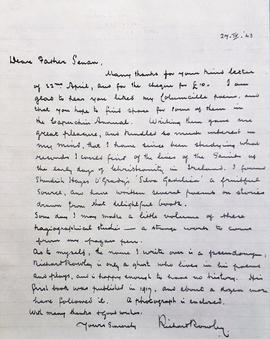 27.IV.43
Dear Father Senan,
Many thanks for your kind letter
of 22nd April, and for the cheque for £10. I am
glad to hear you liked my Columcille poems, and
that you hope to find space for some of them in
the Capuchin Annual. Writing them gave me
great pleasure, and kindled so much interest in
my mind, that I have since been studying what
records I could find of the lives of the Saints of
the early days of Christianity in Ireland. I found
Standish Hayes O'Grady's "Silva Gadelica" a fruitful
source, and have written several poems on stories
drawn from that delightful book.
Some day I may make a little volume of these
hagiographical studies — a strange work to come
from my pagan pen.
As to myself, the name I write over is a pseudonym,
Richard Rowley is only a ghost who lives in his poems
and plays, and is happy enough to have no history. His
first book was published in 1917, and about a dozen more
have followed it. A photograph is enclosed.
With many thanks & good wishes.
Yours Sincerely
Richard Rowley